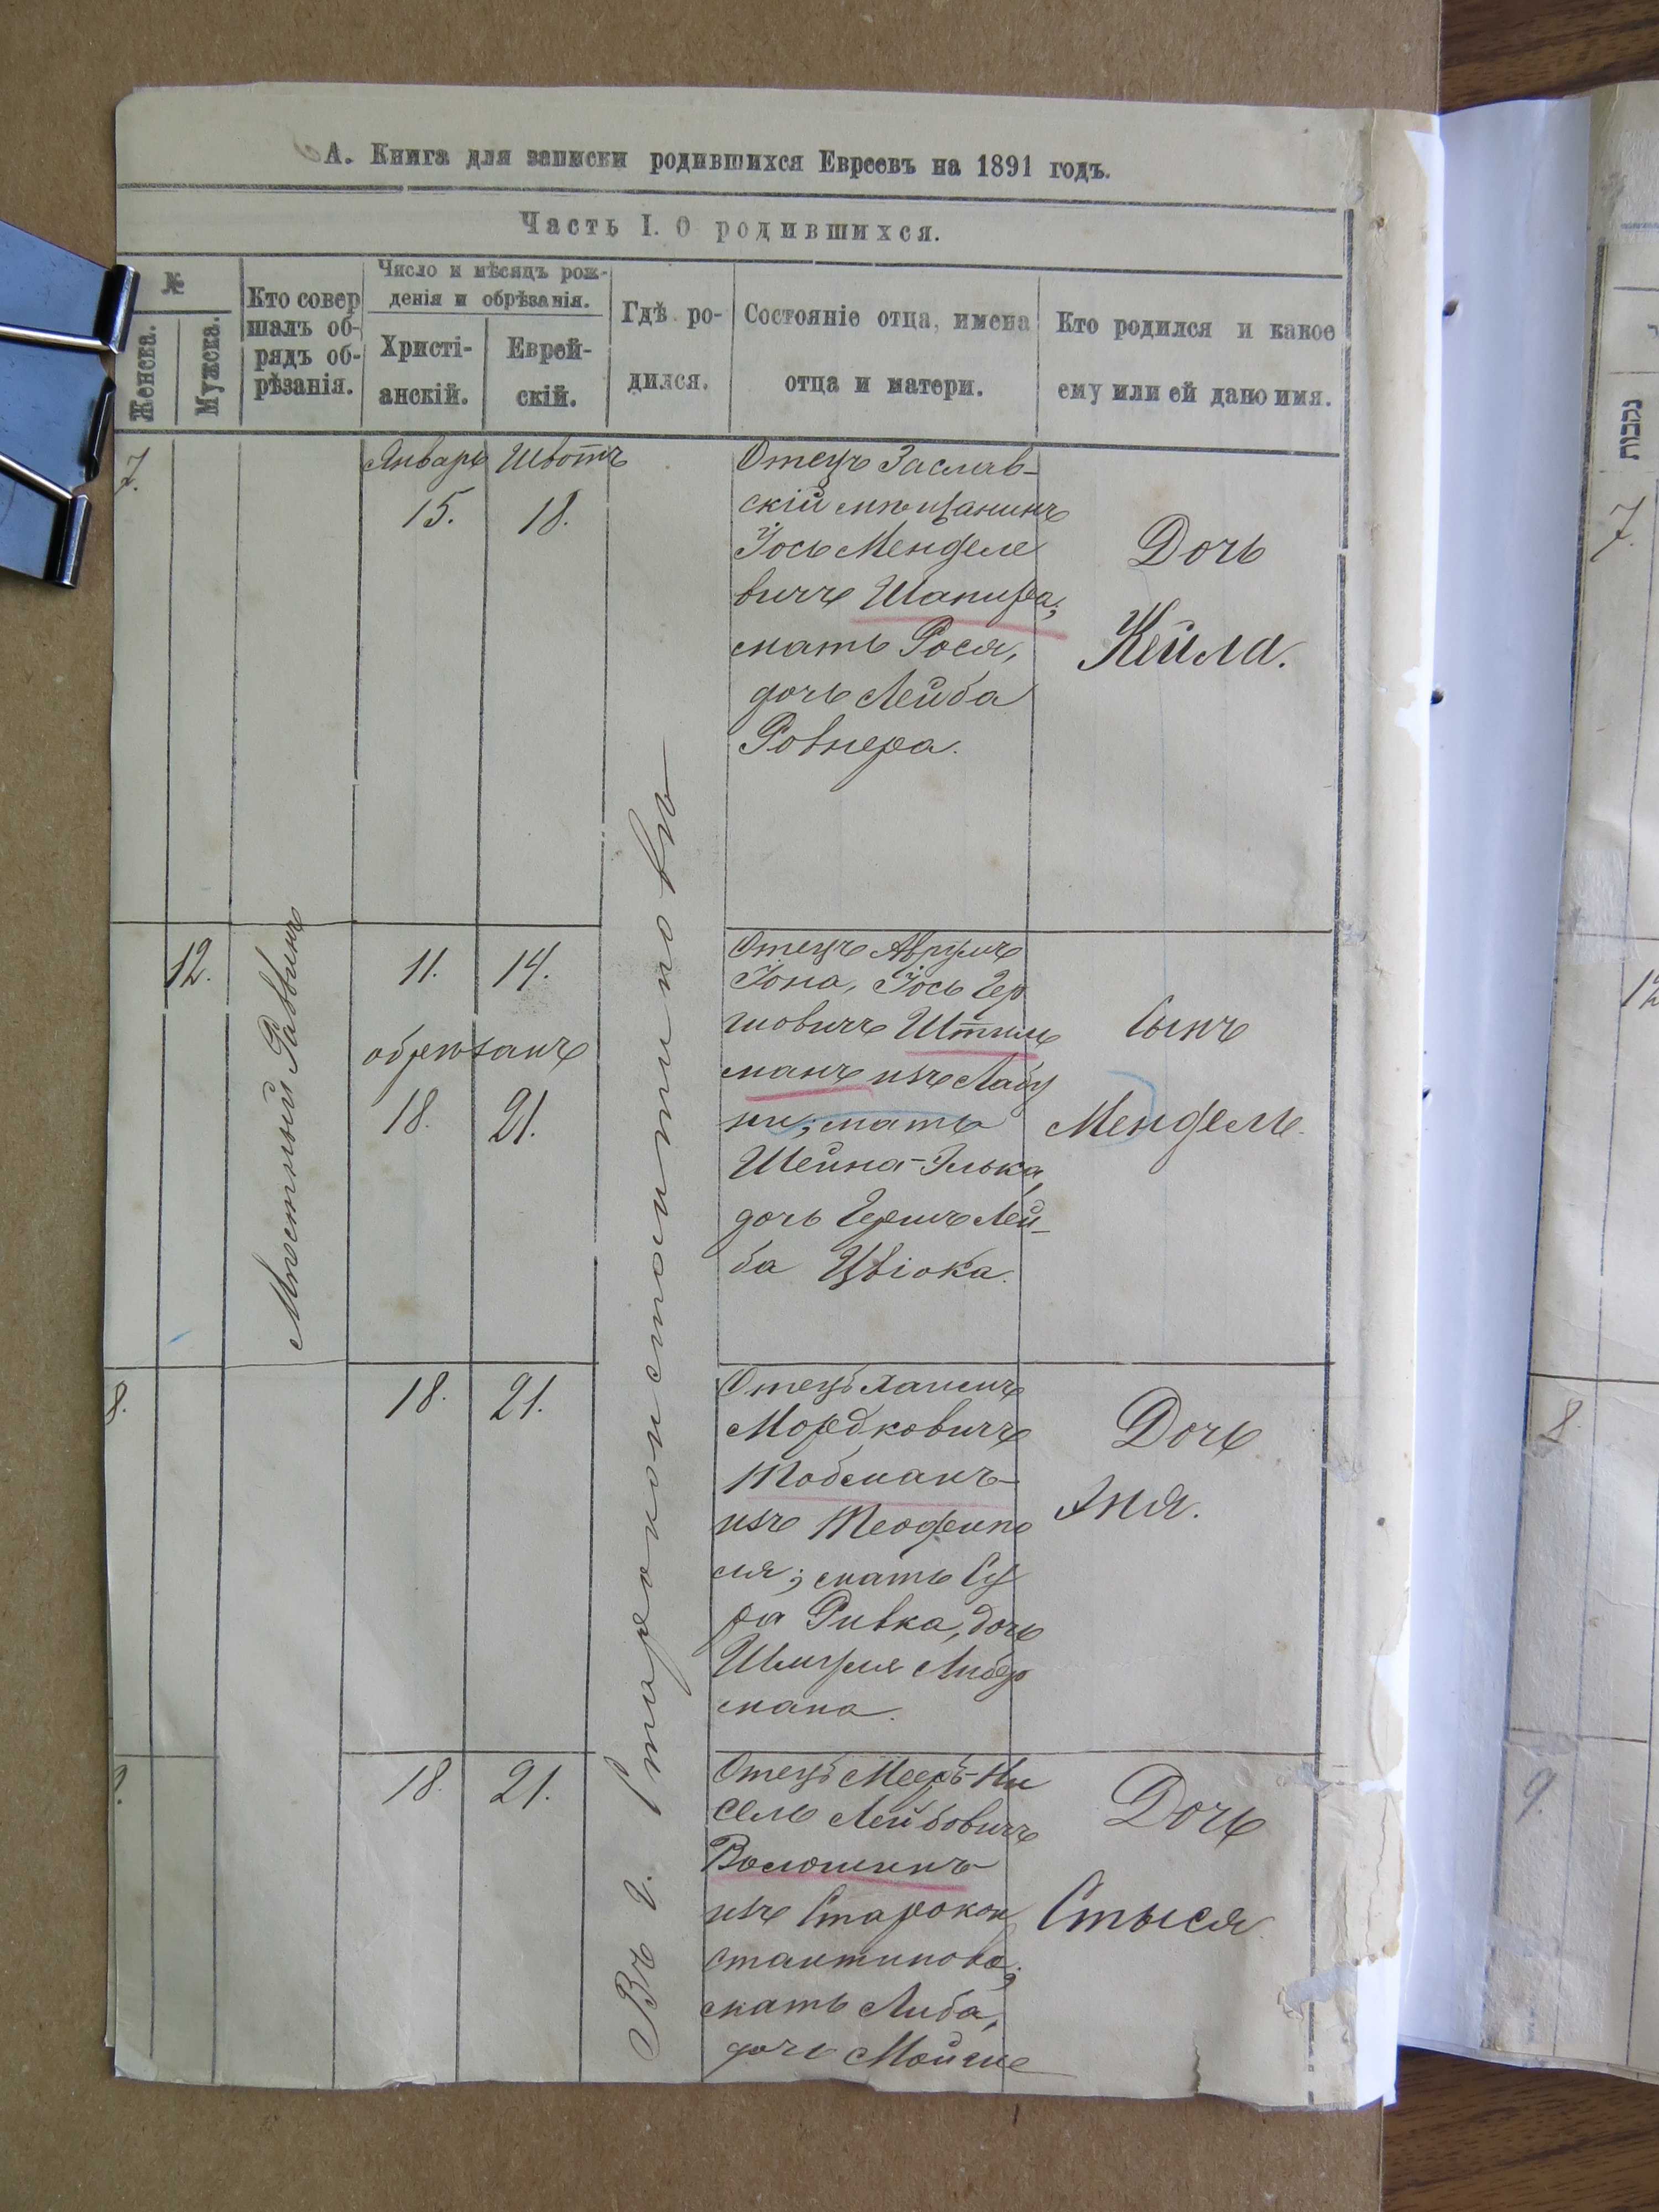 А. Книга для записки родившихся Евреевъ на 1891 годъ.
Часть I. О родившихся.
№
Женска.
Мужска.
Кто совер
шалъ об-
рядъ об-
рѣзанія.
Число и мѣсяцъ рож-
денія и обрѣзанія.
Христі-
анскій.
Еврей-
скій.
Гдѣ ро-
дился.
Состояніе отца, имена
отца и матери.
Кто родился и какое
ему или ей дано имя.
נקבות
Мѣстный Раввинъ
Въ г. Староконстантиновѣ
7.
Январь Швотъ
15. 18.
Отецъ Заслав-
скій мѣщанинъ
Іось Менделе
вичъ Шапира;
мать Рося,
дочь Лейба
Ровнера.
Дочь
Кейла.
7.
12.
11. 14.
обрѣзанъ
18. 21.
Отецъ Аврумъ
Іона, Іось Гер
шовичъ Штиль
манъ изъ Лабу
ни; мать
Шейна-Элька,
дочь Гершъ Лей-
ба Цвіока.
Сынъ
Мендель.
12
8.
18. 21.
Отецъ Хаимъ
Мордковичъ
Тобманъ
изъ Теофипо
ля; мать Су
ра Ривка, дочь
Шмуля Либер
мана.
Дочь
Эня.
8.
9.
18. 21.
Отецъ Мееръ-Ни
сель Лейбовичъ
Волошинъ
изъ Старокон
стантинова;
мать Либа,
дочь Мойше
Дочь
Стыся.
9.